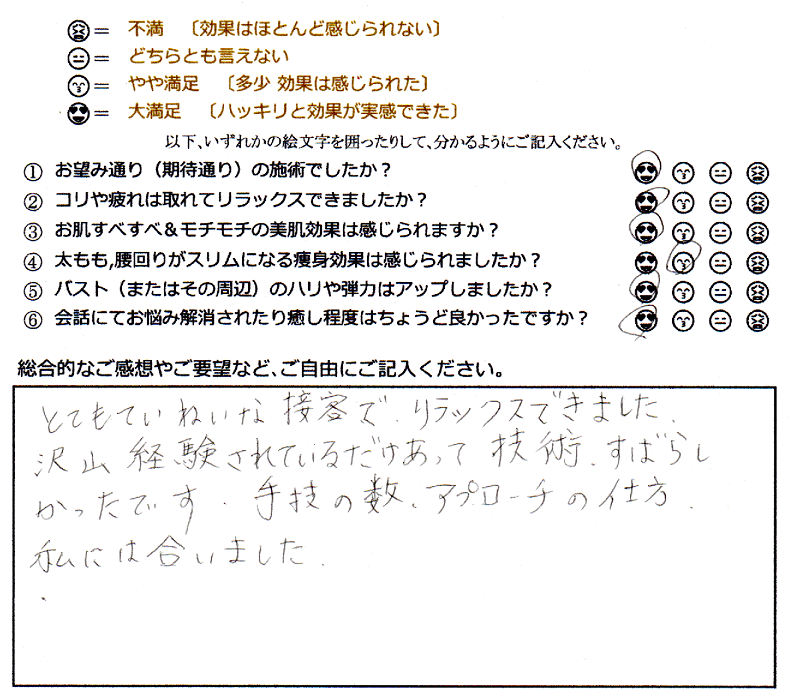 = 不満 〔効果はほとんど感じられない〕
= どちらとも言えない
= やや満足 〔多少 効果は感じられた〕
= 大満足 〔ハッキリと効果が実感できた〕
以下、いずれかの絵文字を囲ったりして、分かるようにご記入ください。
① お望み通り（期待通り）の施術でしたか？
② コリや疲れは取れてリラックスできましたか？
③ お肌すべすべ＆モチモチの美肌効果は感じられますか？
④ 太もも,腰回りがスリムになる痩身効果は感じられましたか？
⑤ バスト（またはその周辺）のハリや弾力はアップしましたか？
⑥ 会話にてお悩み解消されたり癒し程度はちょうど良かったですか？
総合的なご感想やご要望など、ご自由にご記入ください。
とてもていねいな接客で、リラックスできました。
沢山経験されているだけあって技術、すばらし
かったです。手技の数、アプローチの仕方、
私には合いました。